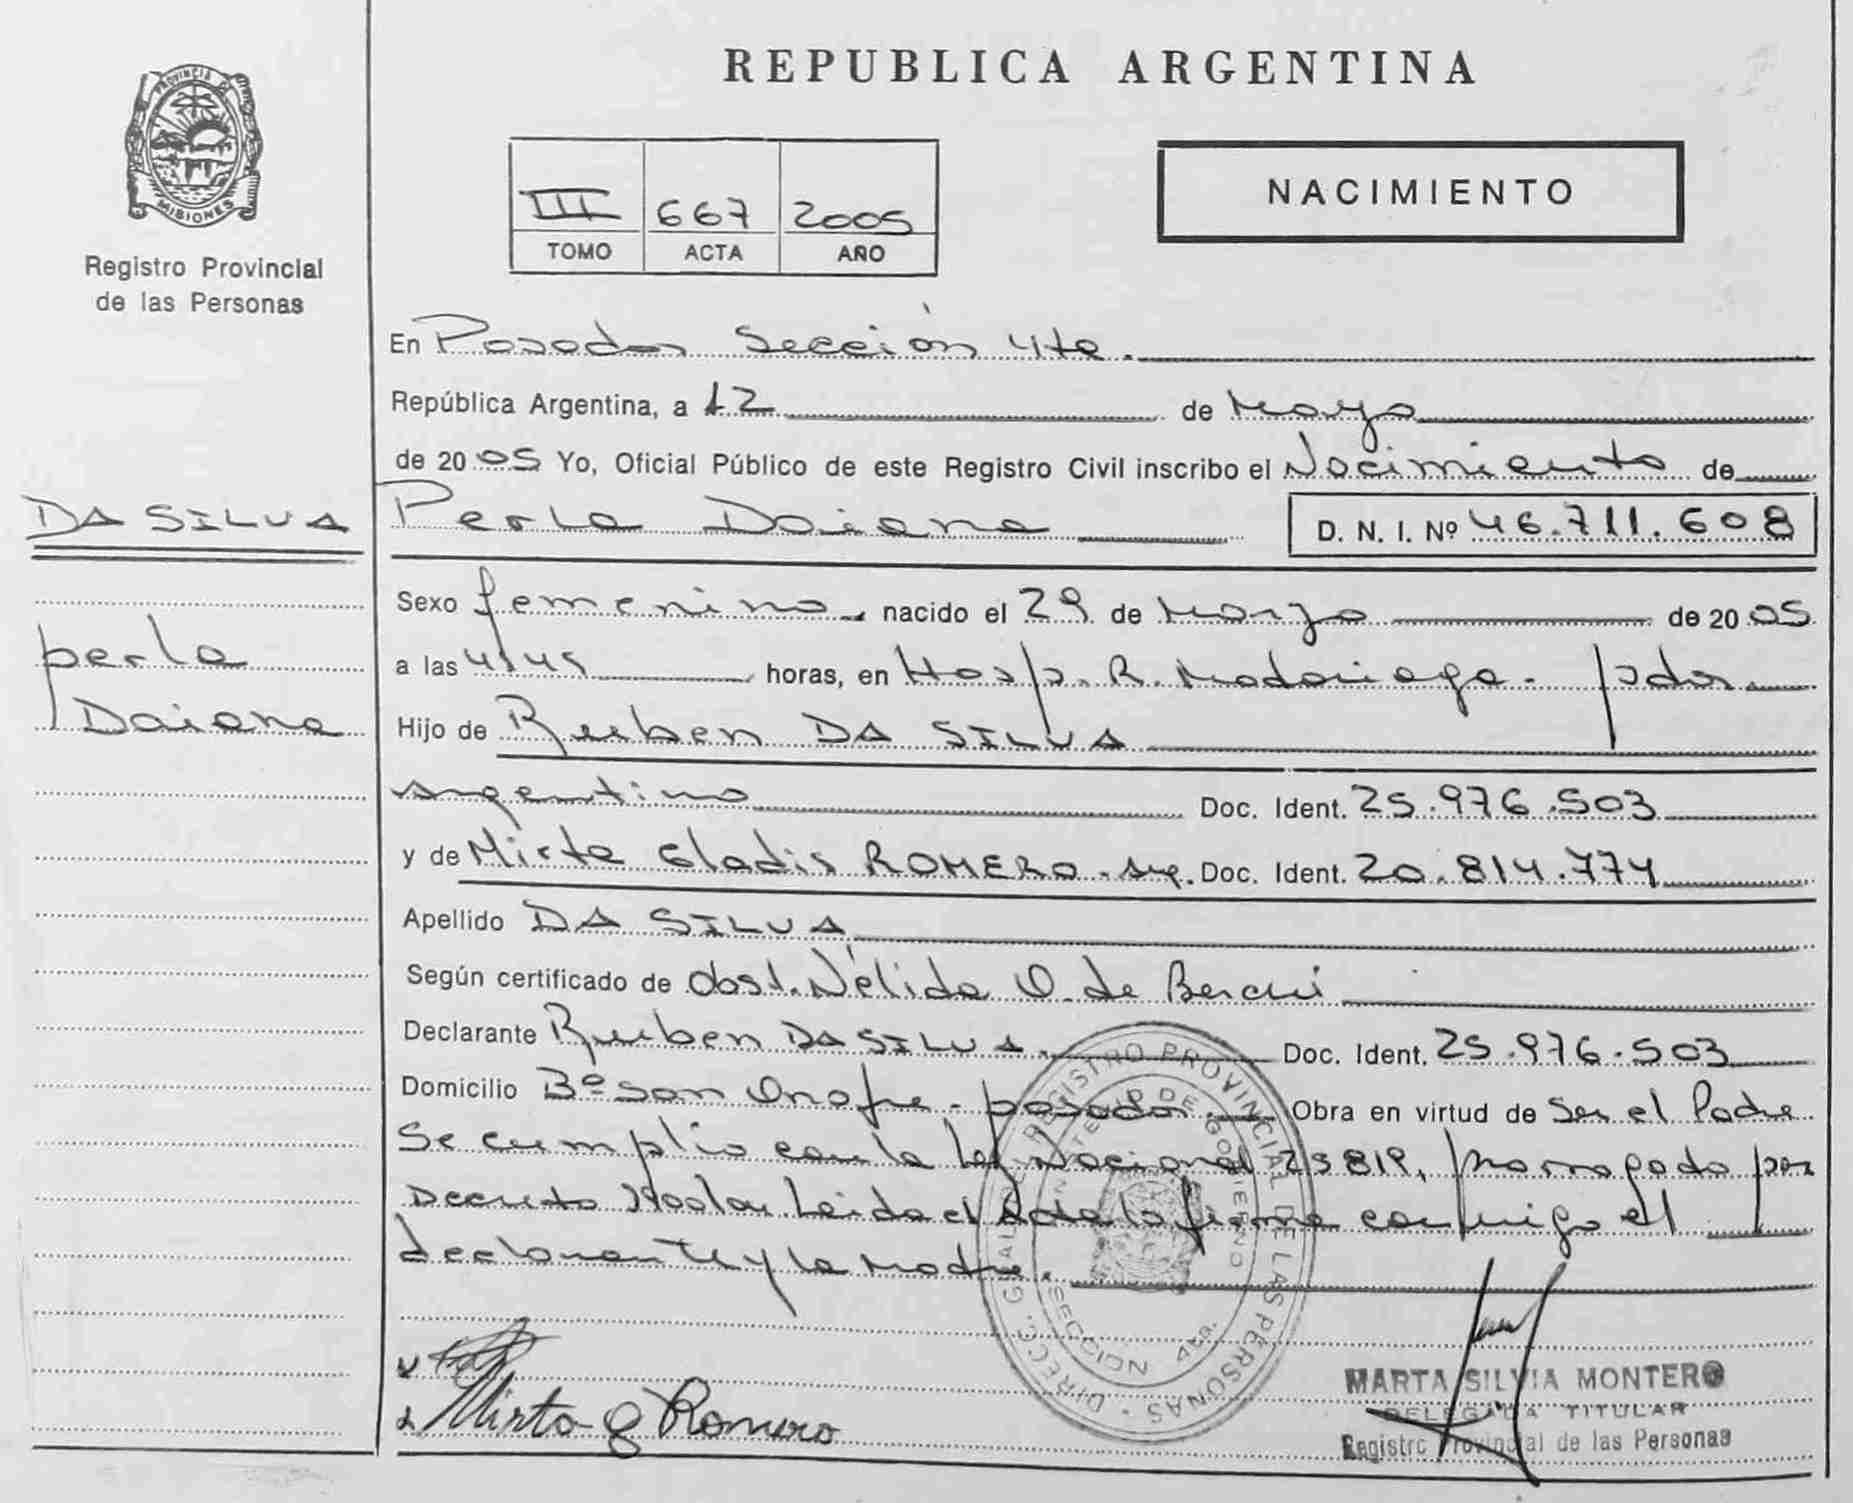 REPUBLICA ARGENTINA
PROVINCIA DE
MISIONES
Registro Provincial
de las Personas
III 667 2005
TOMO ACTA AÑO
NACIMIENTO
En Posadas Sección 4ta.
República Argentina, a 12 de Mayo
de 2005 Yo, Oficial Público de este Registro Civil inscribo el Nacimiento de
DA SILVA
Perla Daiana D. N. I. Nº 46.711.608
Sexo femenino, nacido el 29 de Marzo de 2005
perla
Daiana
a las 4,45 horas, en Hosp. R. Madariaga - pdas
Hijo de Ruben DA SILVA
argentino Doc. Ident. 25.976.503
y de Mirta Gladis ROMERO - arg. Doc. Ident. 20.814.774
Apellido DA SILVA
Según certificado de obst. Nélida O. de
Declarante Ruben DA SILVA. Doc. Ident. 25.976.503
Domicilio Bº San Onofre - posadas. Obra en virtud de Ser el Padre
Se cumplio con la Ley Nacional 25819, prorrogado por
Decreto Leida el Acta la firma conmigo el
declarante y la Madre.
DIRECC. GRAL. DE REGISTRO PROVINCIAL DE LAS PERSONAS
MINISTERIO DE GOBIERNO
SECCION 4ta.
Mirta G Romero
MARTA SILVIA MONTERO
DELEGADA TITULAR
Registro Provincial de las Personas